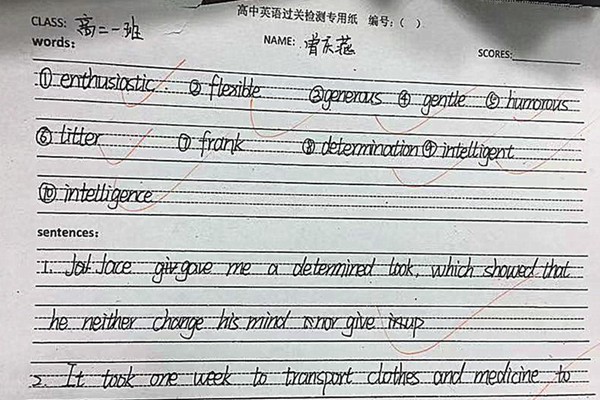 高中英语过关检测专用纸 编号:( )
CLASS: 高二一班
NAME: 曾庆
SCORES:
words:
① enthusiastic ② flexible ③ generous ④ gentle ⑤ humorous
⑥ litter ⑦ frank ⑧ determination ⑨ intelligent
⑩ intelligence
sentences:
1. Jace gave me a determined look, which showed that
he neither change his mind nor give up
2. It took one week to transport clothes and medicine to